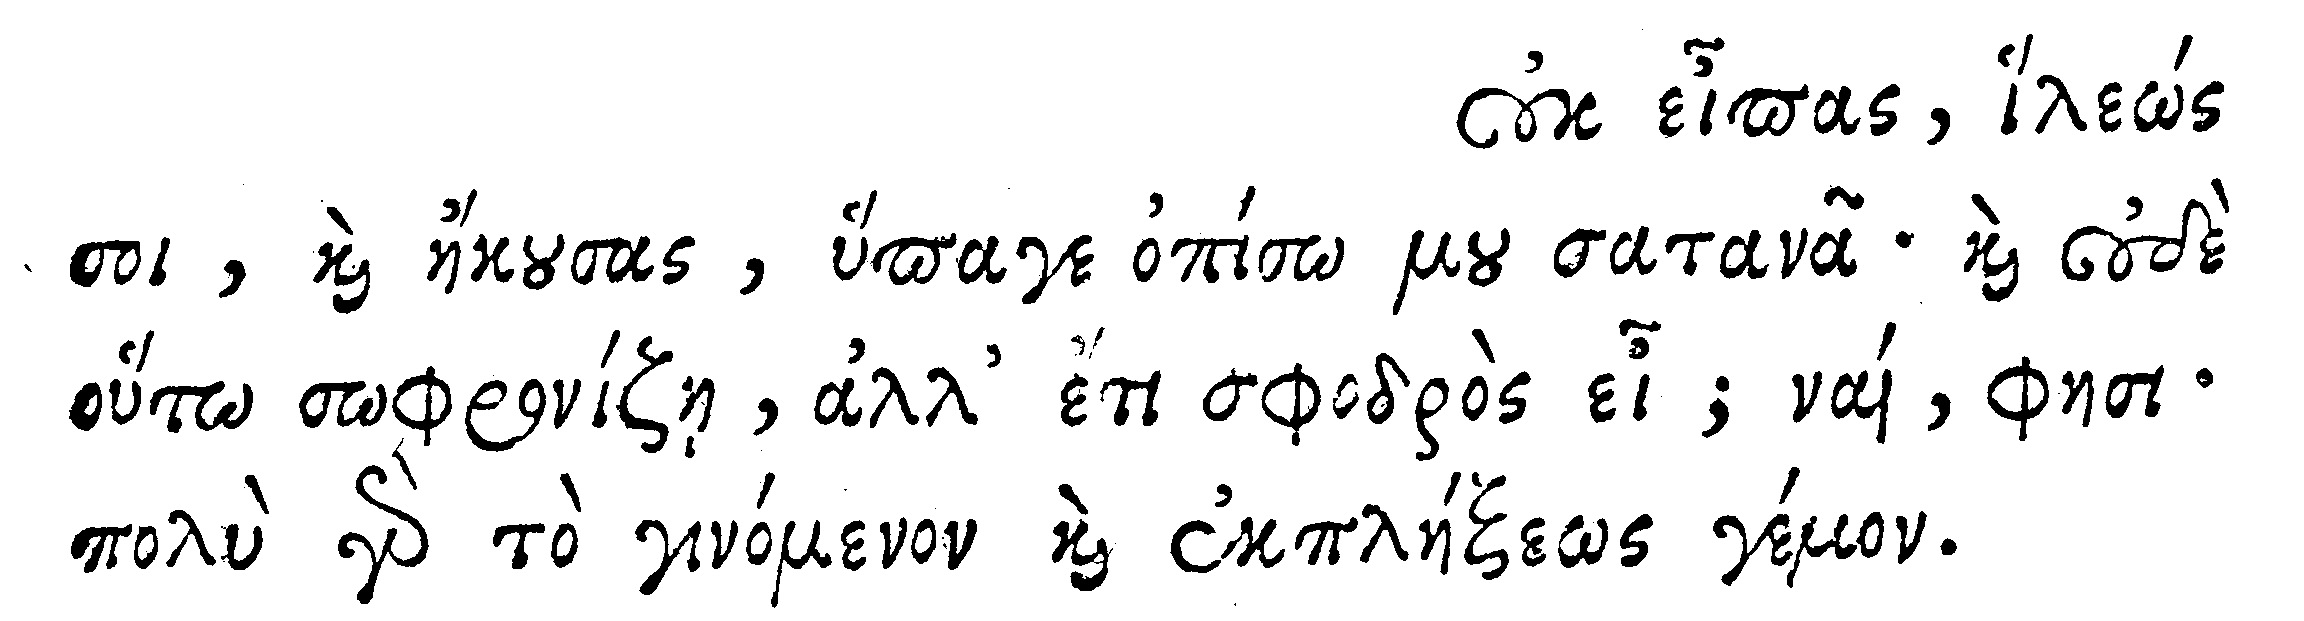 οὐκ εἶπας, ἵλεώς
σοι, καὶ ἤκουσας, ὕπαγε ὀπίσω μου σατανᾶ· καὶ οὐδὲ
οὕτω σωφρονίζῃ, ἀλλ' ἔτι σφοδρὸς εἶ; ναί, φησι·
πολὺ γὰρ τὸ γινόμενον καὶ ἐκπλήξεως γέμον.